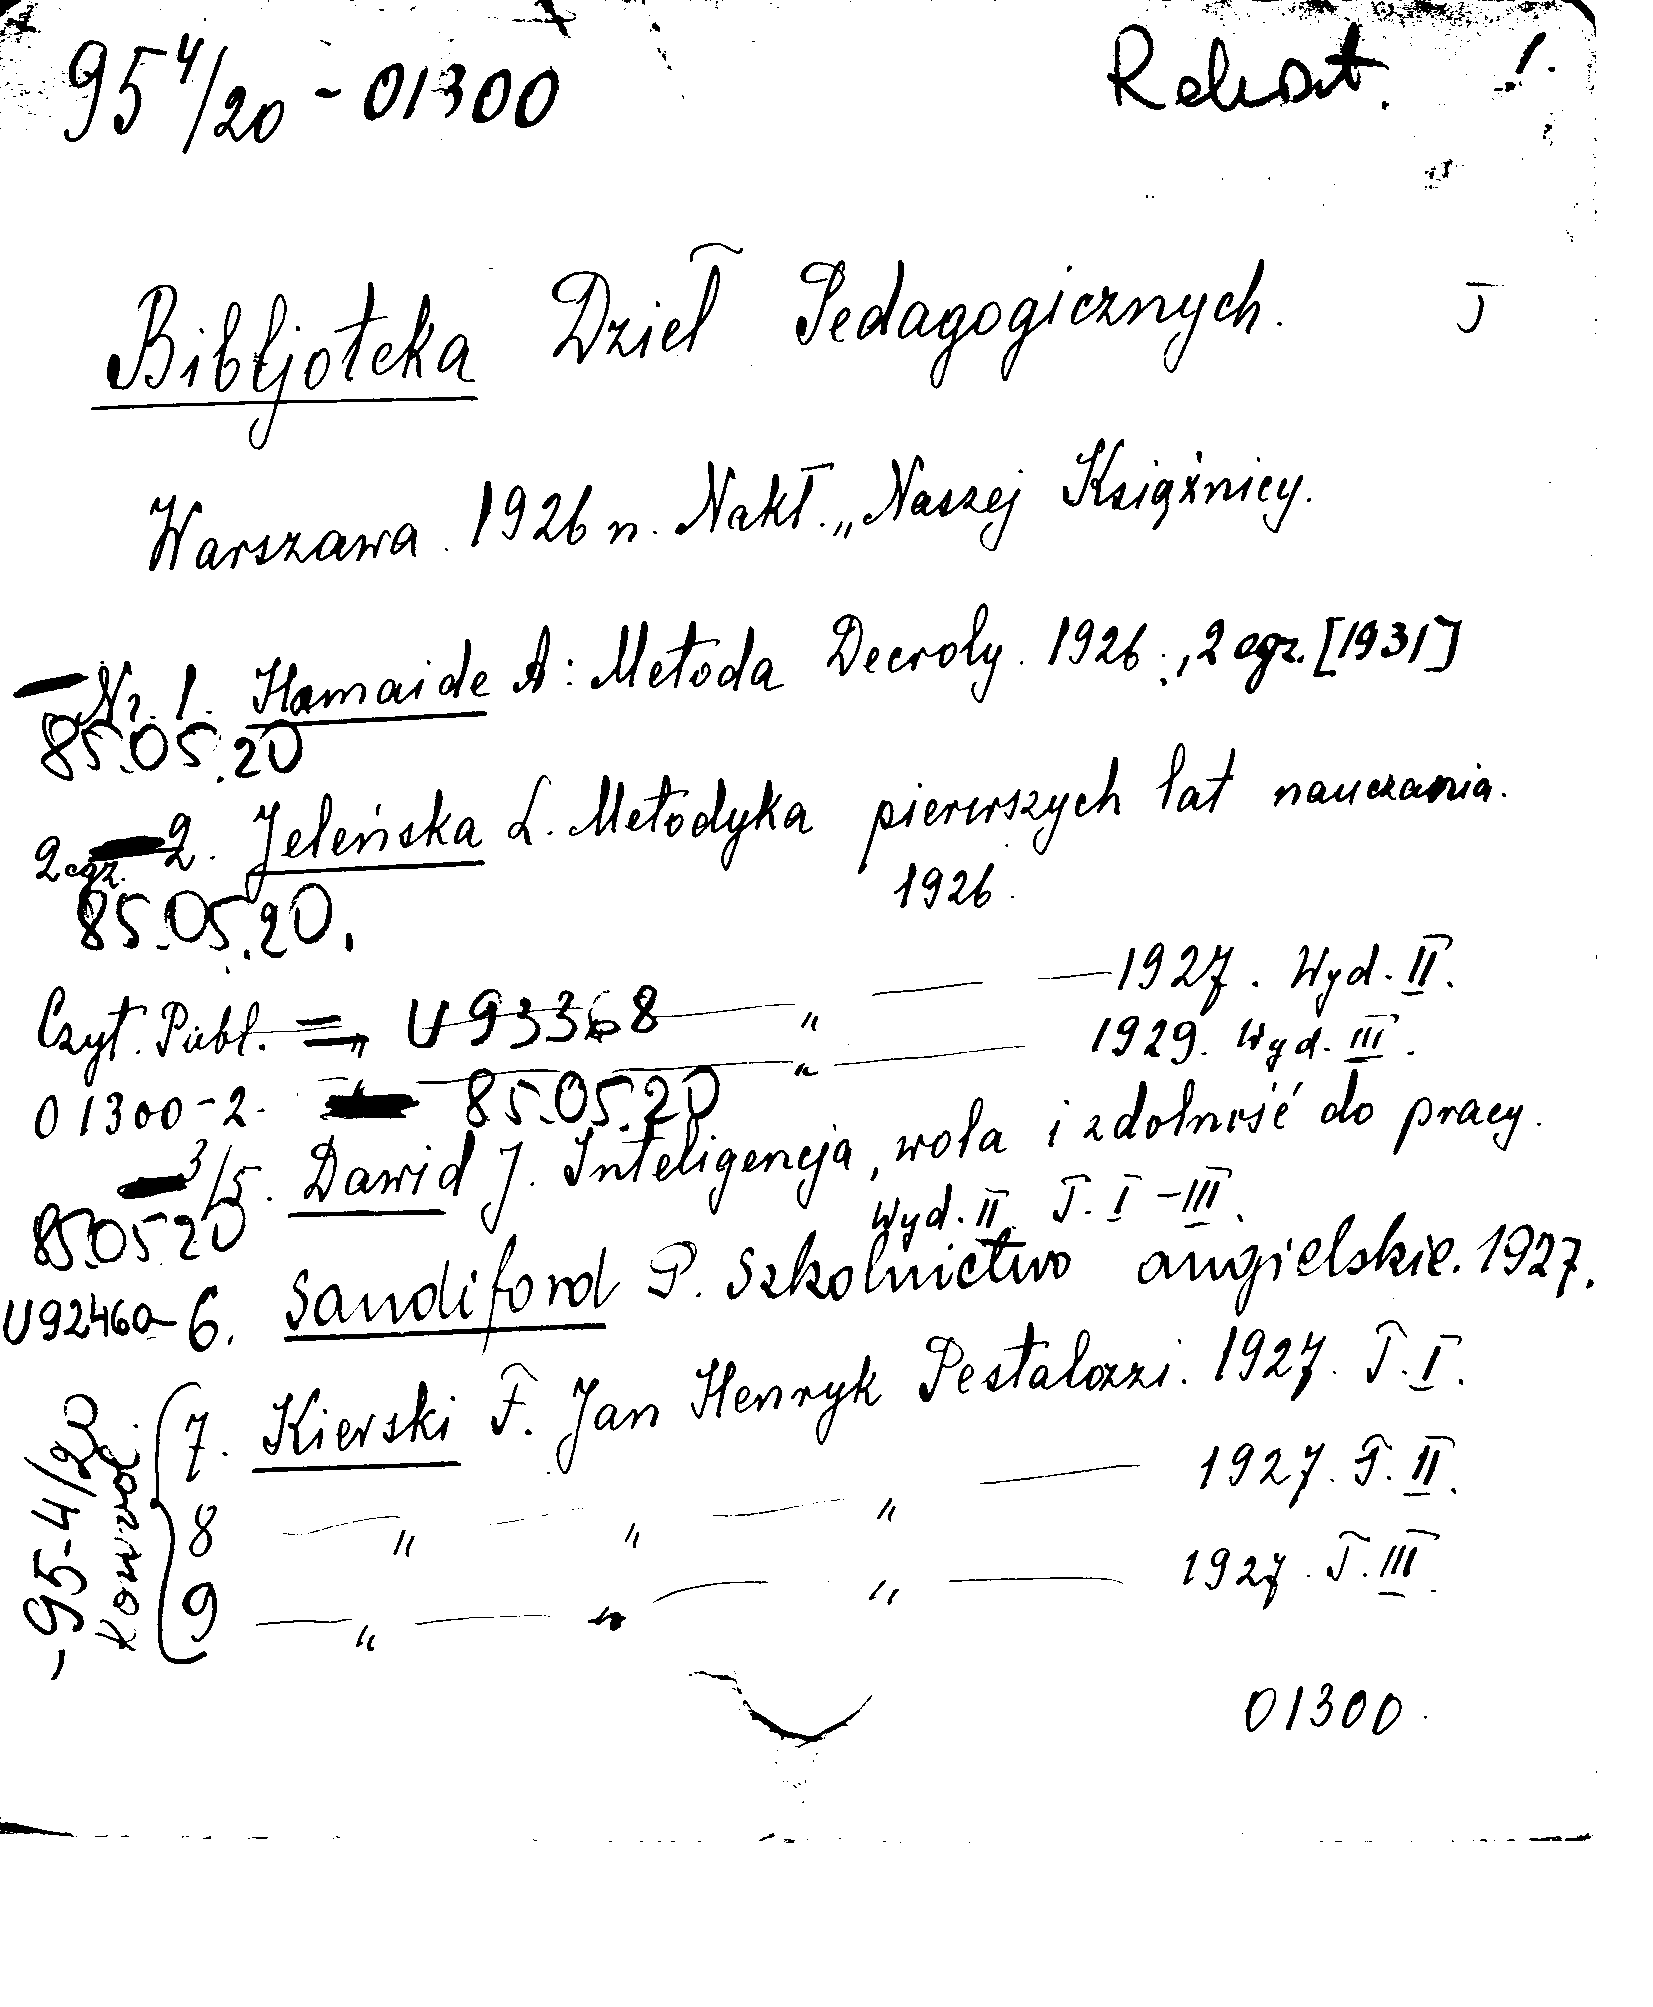 95 4/20 - 01300
Bibljoteka Dzieł Pedagogicznych. I
Warszawa. 1926 n. Nakł. „Naszej Książnicy.
Nr. 1. Hamaide A: Metoda Decroly. 1926., 2 egz. [1931]
85.05.20
2 egz. 2. Jeleńska L. Metodyka pierwszych lat nauczania.
1926.
85.05.20.
Czyt. Publ. = „ U 93368 — „ — — 1927. Wyd. II.
01300-2. „ — 85.05.20 „ — 1929. Wyd. III.
3/5. Dawid J. Inteligencja, wola i zdolność do pracy.
85.05.20 Wyd. II. T. I - III.
U92460 - 6. Sandiford P. Szkolnictwo angielskie. 1927.
7. Kierski F. Jan Henryk Pestalozzi. 1927. T. I.
8 — „ — „ — „ — 1927. T. II.
9 — „ — „ — „ — 1927. T. III.
95-4/20
01300.